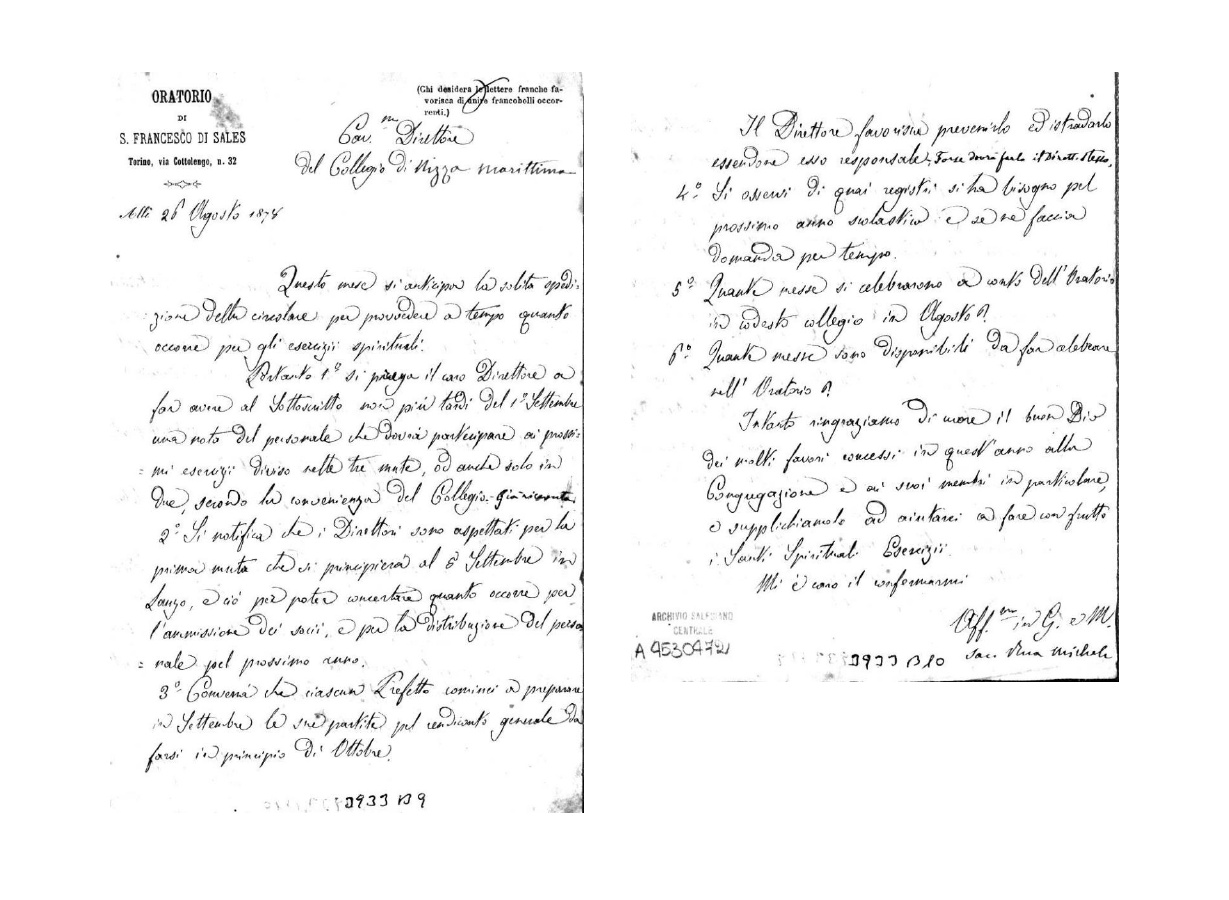 ORATORIO
DI
S. FRANCESCO DI SALES
Torino, via Cottolengo, n. 32
(Chi desidera le lettere franche fa-
vorisca di unire francobolli occor-
renti.)
Car.mo Direttore
del Collegio di Nizza marittima
Atti 26 Agosto 1878
Questo mese si anticipa la solita spedi=
zione della circolare per provvedere a tempo quanto
occorre per gli esercizii spirituali.
Pertanto 1.o si prega il caro Direttore a
far avere al Sottoscritto non più tardi del 1o Settembre
una nota del personale che dovrà partecipare ai prossi=
=mi esercizii diviso nelle tre mute, od anche solo in
due, secondo la convenienza del Collegio.
2o Si notifica che i Direttori sono aspettati per la
prima muta che si principierà al 6 Settembre in
Lanzo, e ciò per poter concertare quanto occorre per
l'ammissione dei socii, e per la distribuzione del perso
=nale pel prossimo anno.
3o Converrà che ciascun Prefetto cominci a preparare
in Settembre le sue partite pel rendiconto generale da
farsi in principio di Ottobre.
D933 B9
Il Direttore favorisca prevenirlo ed istradarlo
essendone esso responsale; Forse dovrà farlo il Dirett. stesso.
4.o Si osservi di quai registri si ha bisogno pel
prossimo anno scolastico e se ne faccia
domanda per tempo.
5o Quante messe si celebrarono a conto dell'Oratorio
in codesto collegio in Agosto?
6o Quante messe sono disponibili da far celebrare
nell'Oratorio?
Intanto ringraziamo di cuore il buon Dio
dei molti favori concessi in quest'anno alla
Congregazione e ai suoi membri in particolare,
e supplichiamolo ad aiutarci a fare con frutto
i Santi Spirituali Esercizii.
Mi è caro il confermarmi
Aff.mo in G. e M.
Sac. Rua Michele
ARCHIVIO SALESIANO
CENTRALE
A4530472
D933 B10